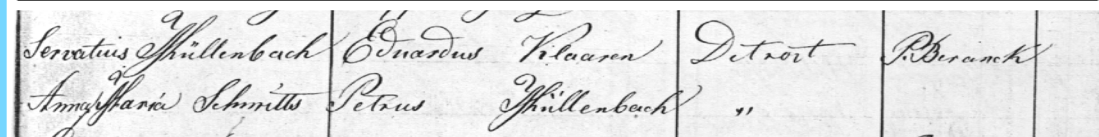 Servatius Müllenbach Eduardus Klaaren Detroit P. Beranek
Anna Maria Schmitts Petrus Müllenbach "